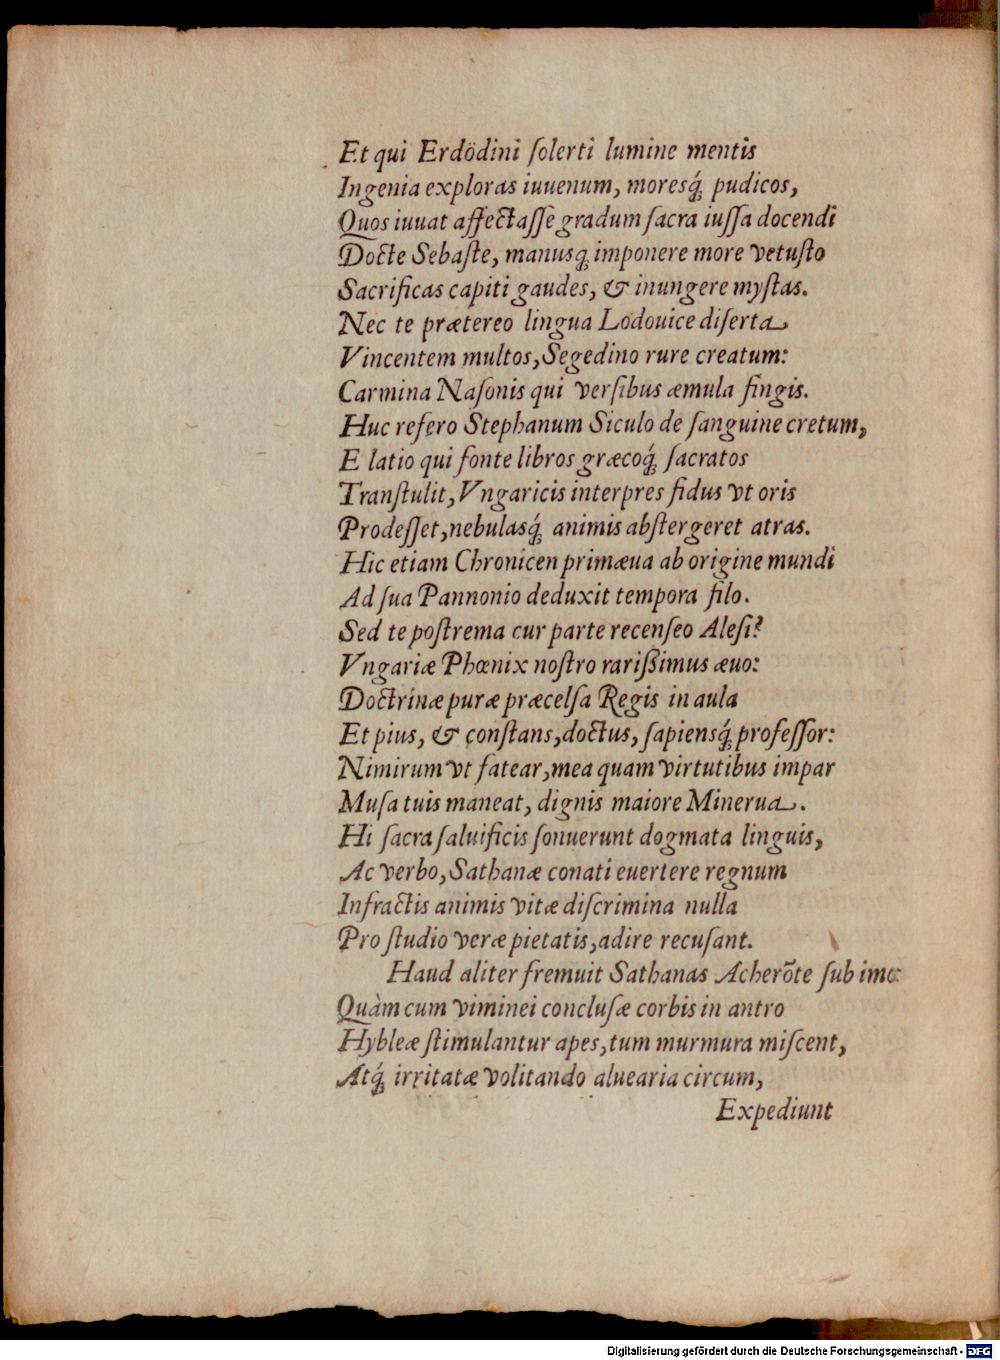 Et qui Erdödini ſolerti lumine mentis
Ingenia exploras iuuenum, moresq́; pudicos,
Quos iuuat affectaſſe gradum ſacra iuſſa docendi
Docte Sebaſte, manusq; imponere more vetuſto
Sacrificas capiti gaudes, & inungere myſtas.
Nec te prætereo lingua Lodouice diſerta
Vincentem multos, Segedino rure creatum:
Carmina Naſonis qui verſibus æmula fingis.
Huc refero Stephanum Siculo de ſanguine cretum,
E latio qui fonte libros græcoq́; ſacratos
Tranſtulit, Vngaricis interpres fidus vt oris
Prodeſſet, nebulasq́; animis abſtergeret atras.
Hic etiam Chronicen primæua ab origine mundi
Ad ſua Pannonio deduxit tempora filo.
Sed te poſtrema cur parte recenſeo Aleſi?
Vngariæ Phœnix noſtro rarißimus æuo:
Doctrinæ puræ præcelſa Regis in aula
Et pius, & conſtans, doctus, ſapiensq́; profeſſor:
Nimirum vt fatear, mea quam virtutibus impar
Muſa tuis maneat, dignis maiore Minerua.
Hi ſacra ſaluificis ſonuerunt dogmata linguis,
Ac verbo, Sathanæ conati euertere regnum
Infractis animis vitæ diſcrimina nulla
Pro ſtudio veræ pietatis, adire recuſant.
Haud aliter fremuit Sathanas Acherōte ſub imo:
Quàm cum viminei concluſæ corbis in antro
Hybleæ ſtimulantur apes, tum murmura miſcent,
Atq́; irritatæ volitando aluearia circum,
Expediunt
Digitalisierung gefördert durch die Deutsche Forschungsgemeinschaft - DFG